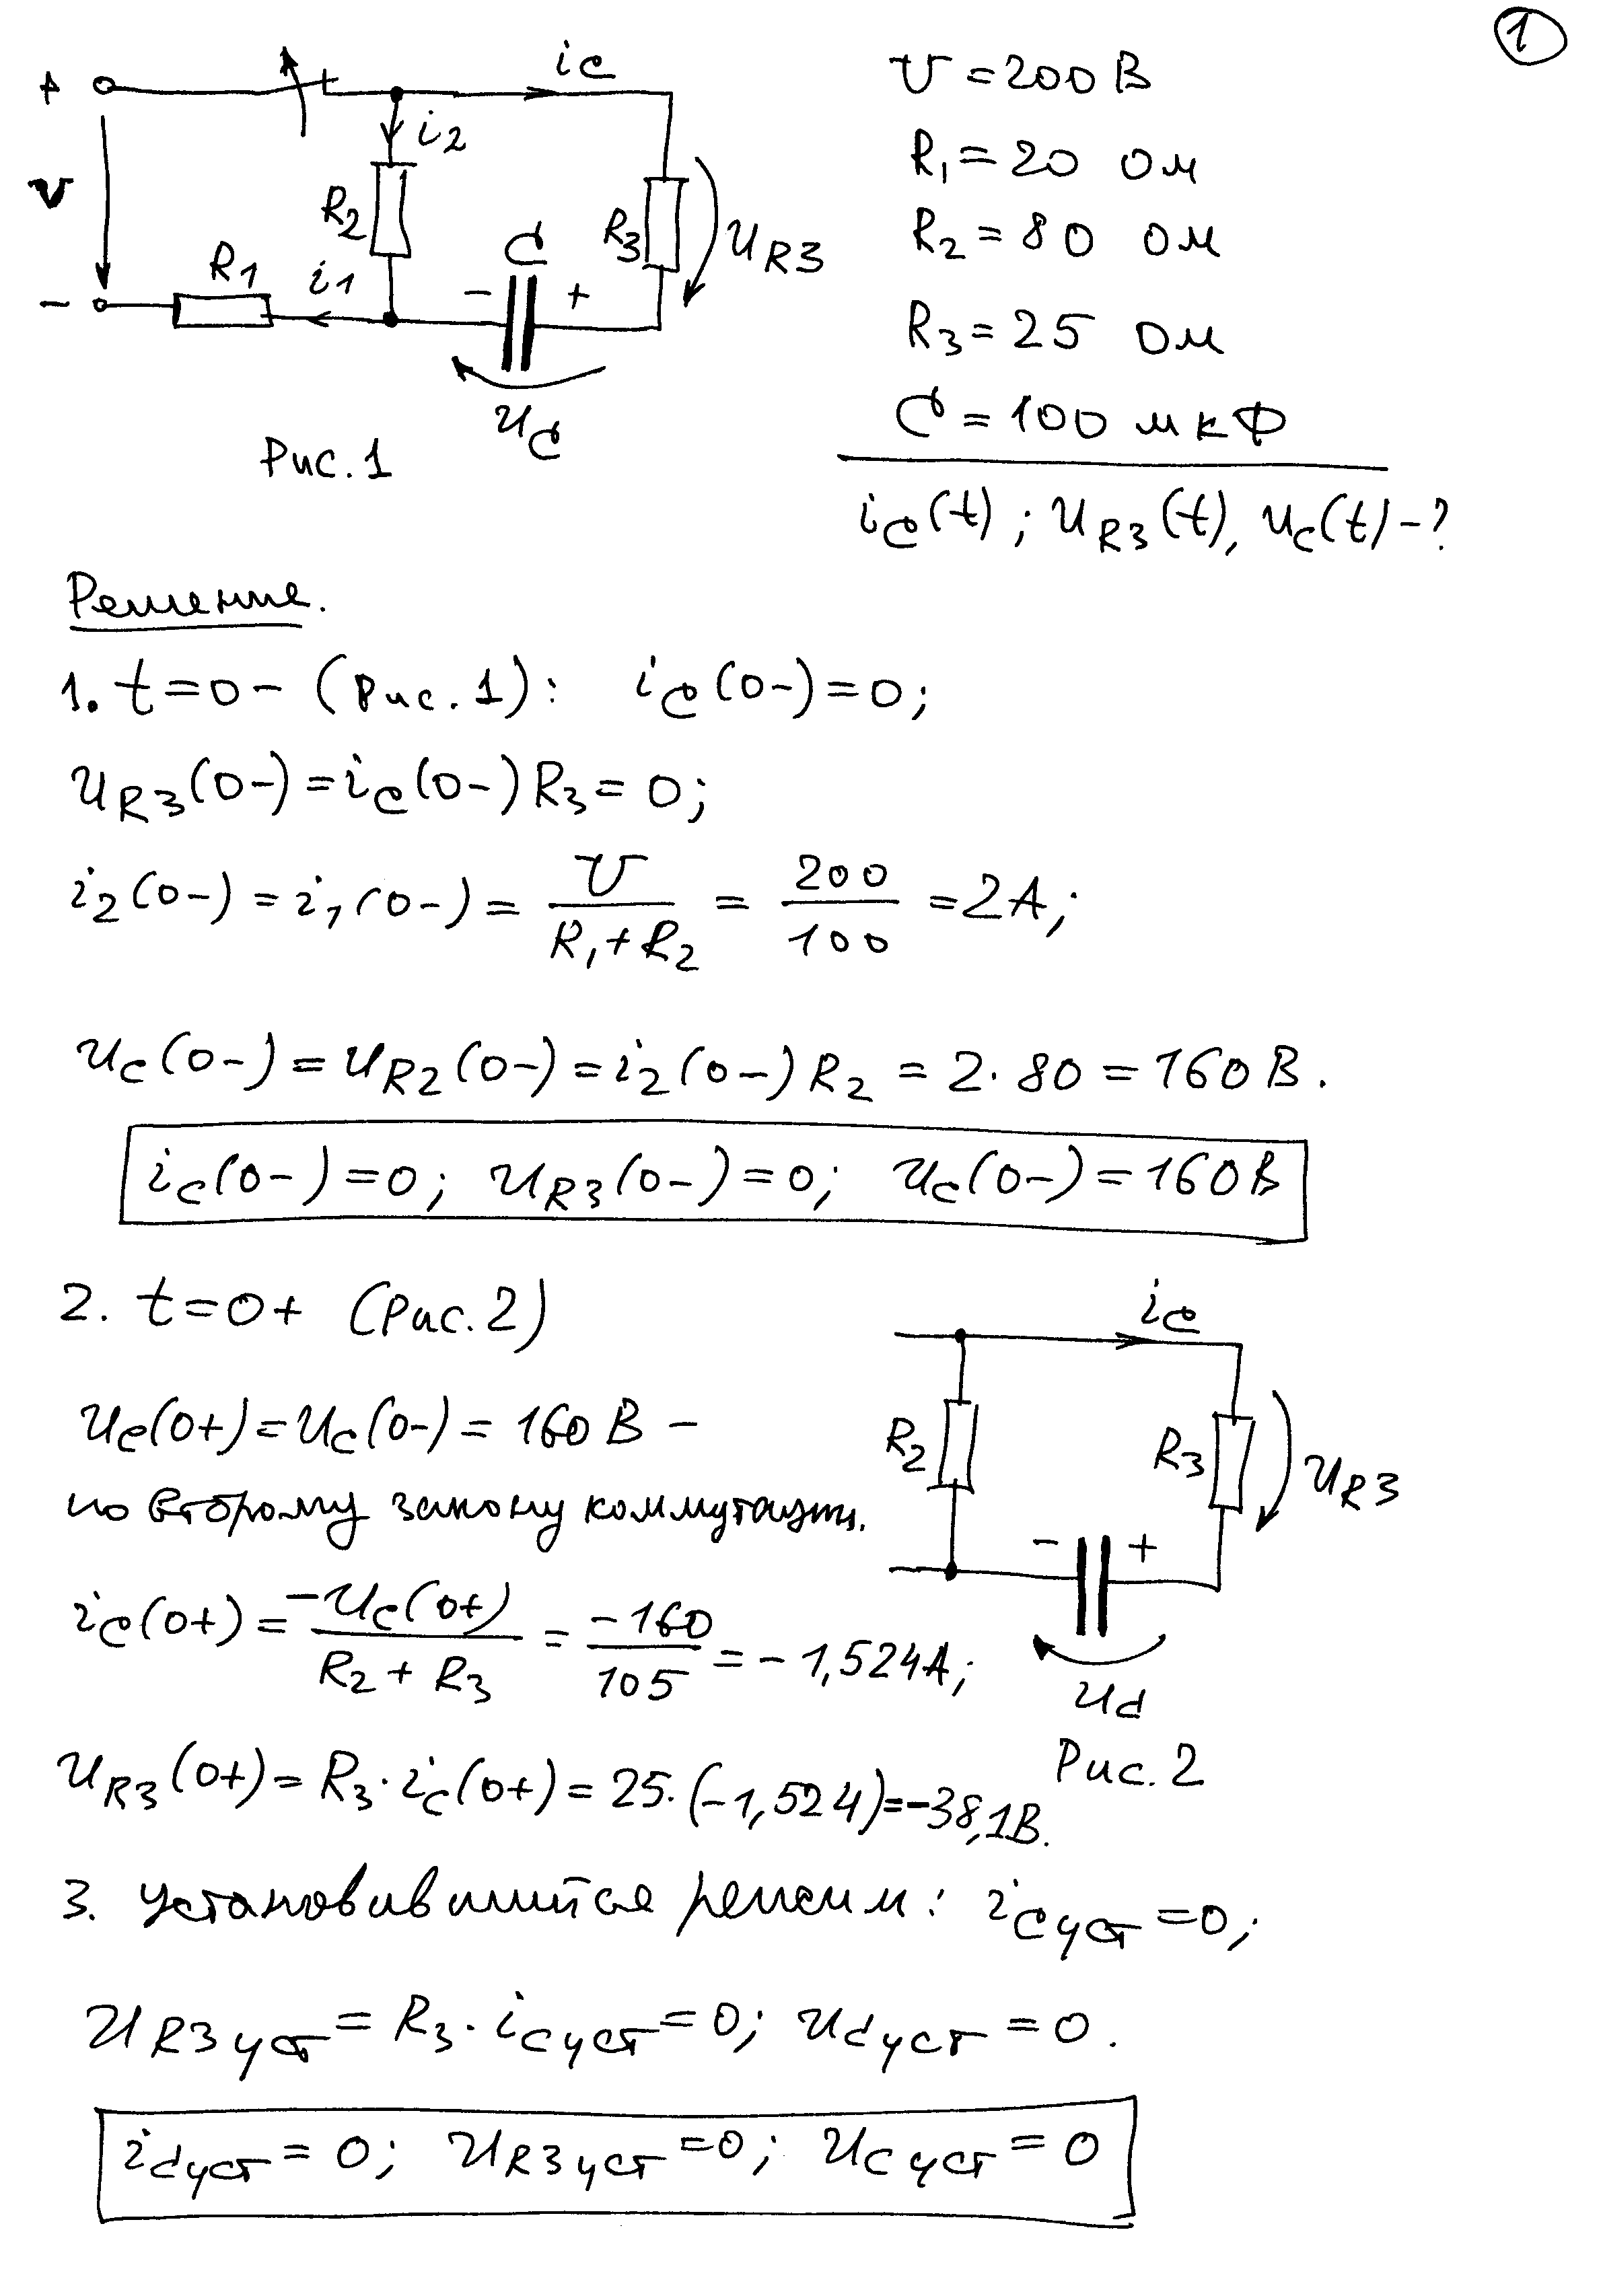 ①
+
i_C
i_2
U
R_2
C
R_3
u_R3
R_1
i_1
- +
-
u_C
Рис. 1
U = 200 В
R_1 = 20 Ом
R_2 = 80 Ом
R_3 = 25 Ом
C = 100 мкФ
i_C(t); u_R3(t), u_C(t) - ?
Решение.
1. t=0- (Рис. 1): i_C(0-)=0;
u_R3(0-)=i_C(0-)R_3=0;
i_2(0-)=i_1(0-)=U/(R_1+R_2)=200/100=2A;
u_C(0-)=u_R2(0-)=i_2(0-)R_2=2·80=160 В.
i_C(0-)=0; u_R3(0-)=0; u_C(0-)=160 В
2. t=0+ (Рис. 2)
u_C(0+)=u_C(0-)=160 В -
по второму закону коммутации.
i_C(0+)=-u_C(0+)/(R_2+R_3)=-160/105=-1,524A;
i_C
R_2
R_3
u_R3
- +
u_C
Рис. 2
u_R3(0+)=R_3·i_C(0+)=25·(-1,524)=-38,1В.
3. Установившийся режим: i_Cуст=0;
u_R3уст=R_3·i_Cуст=0; u_Cуст=0.
i_Cуст=0; u_R3уст=0; u_Cуст=0